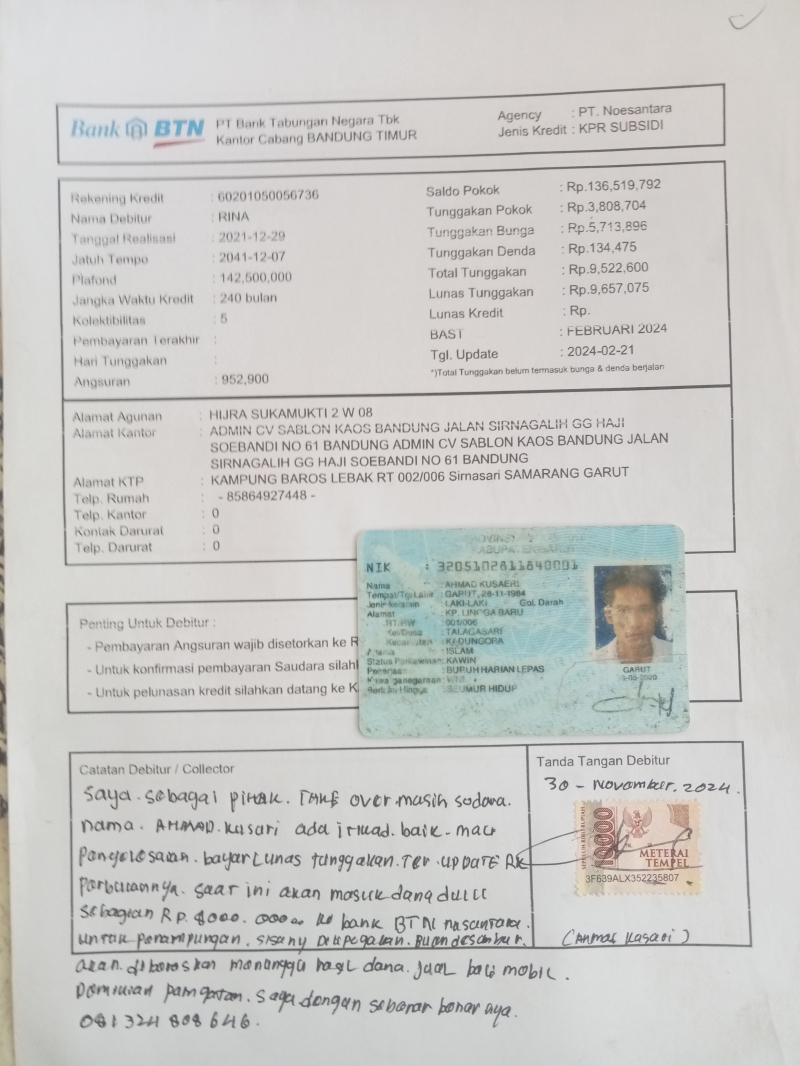 Bank BTN
PT Bank Tabungan Negara Tbk
Kantor Cabang BANDUNG TIMUR
Agency : PT. Noesantara
Jenis Kredit : KPR SUBSIDI
Rekening Kredit : 60201050056736
Nama Debitur : RINA
Tanggal Realisasi : 2021-12-29
Jatuh Tempo : 2041-12-07
Plafond : 142,500,000
Jangka Waktu Kredit : 240 bulan
Kolektibilitas : 5
Pembayaran Terakhir :
Hari Tunggakan :
Angsuran : 952,900
Saldo Pokok : Rp.136,519,792
Tunggakan Pokok : Rp.3,808,704
Tunggakan Bunga : Rp.5,713,896
Tunggakan Denda : Rp.134,475
Total Tunggakan : Rp.9,522,600
Lunas Tunggakan : Rp.9,657,075
Lunas Kredit : Rp.
BAST : FEBRUARI 2024
Tgl. Update : 2024-02-21
*)Total Tunggakan belum termasuk bunga & denda berjalan
Alamat Agunan : HIJRA SUKAMUKTI 2 W 08
Alamat Kantor : ADMIN CV SABLON KAOS BANDUNG JALAN SIRNAGALIH GG HAJI
SOEBANDI NO 61 BANDUNG ADMIN CV SABLON KAOS BANDUNG JALAN
SIRNAGALIH GG HAJI SOEBANDI NO 61 BANDUNG
Alamat KTP : KAMPUNG BAROS LEBAK RT 002/006 Sirnasari SAMARANG GARUT
Telp. Rumah : - 85864927448 -
Telp. Kantor : 0
Kontak Darurat : 0
Telp. Darurat : 0
NIK : 3205102811840001
Nama : AHMAD KUSAERI
Tempat/Tgl Lahir : GARUT, 28-11-1984
Jenis kelamin : LAKI-LAKI Gol. Darah
Alamat : KP. LINGGA BARU
RT/RW 001/006
Kel/Desa : TALAGASARI
Kecamatan : KADUNGORA
Agama : ISLAM
Status Perkawinan: KAWIN
Pekerjaan : BURUH HARIAN LEPAS
Kewarganegaraan: WNI
Berlaku Hingga : SEUMUR HIDUP
GARUT
Penting Untuk Debitur :
- Pembayaran Angsuran wajib disetorkan ke R
- Untuk konfirmasi pembayaran Saudara silah
- Untuk pelunasan kredit silahkan datang ke K
Catatan Debitur / Collector
Saya. sebagai pihak. TAKE over masih sodara.
nama. AHMAD. Kusari ada itikad. baik. mau
Panyelosaian. bayar Lunas tunggakan. Ter. UPDATE
Perbulannya. saar ini akan masuk dana dulu
Sebagian RP. 8.000.000 ke bank BTN nusantara.
untuk penampungan. sisany bulan desember.
akan. di bereskan menunggu hasil dana. jual beli mobil.
Demikian. saya dengan sebenar benarnya.
081324808646.
Tanda Tangan Debitur
30 - November. 2024.
10000
METERAI
TEMPEL
3F639ALX352235807
(Ahmad Kusari)